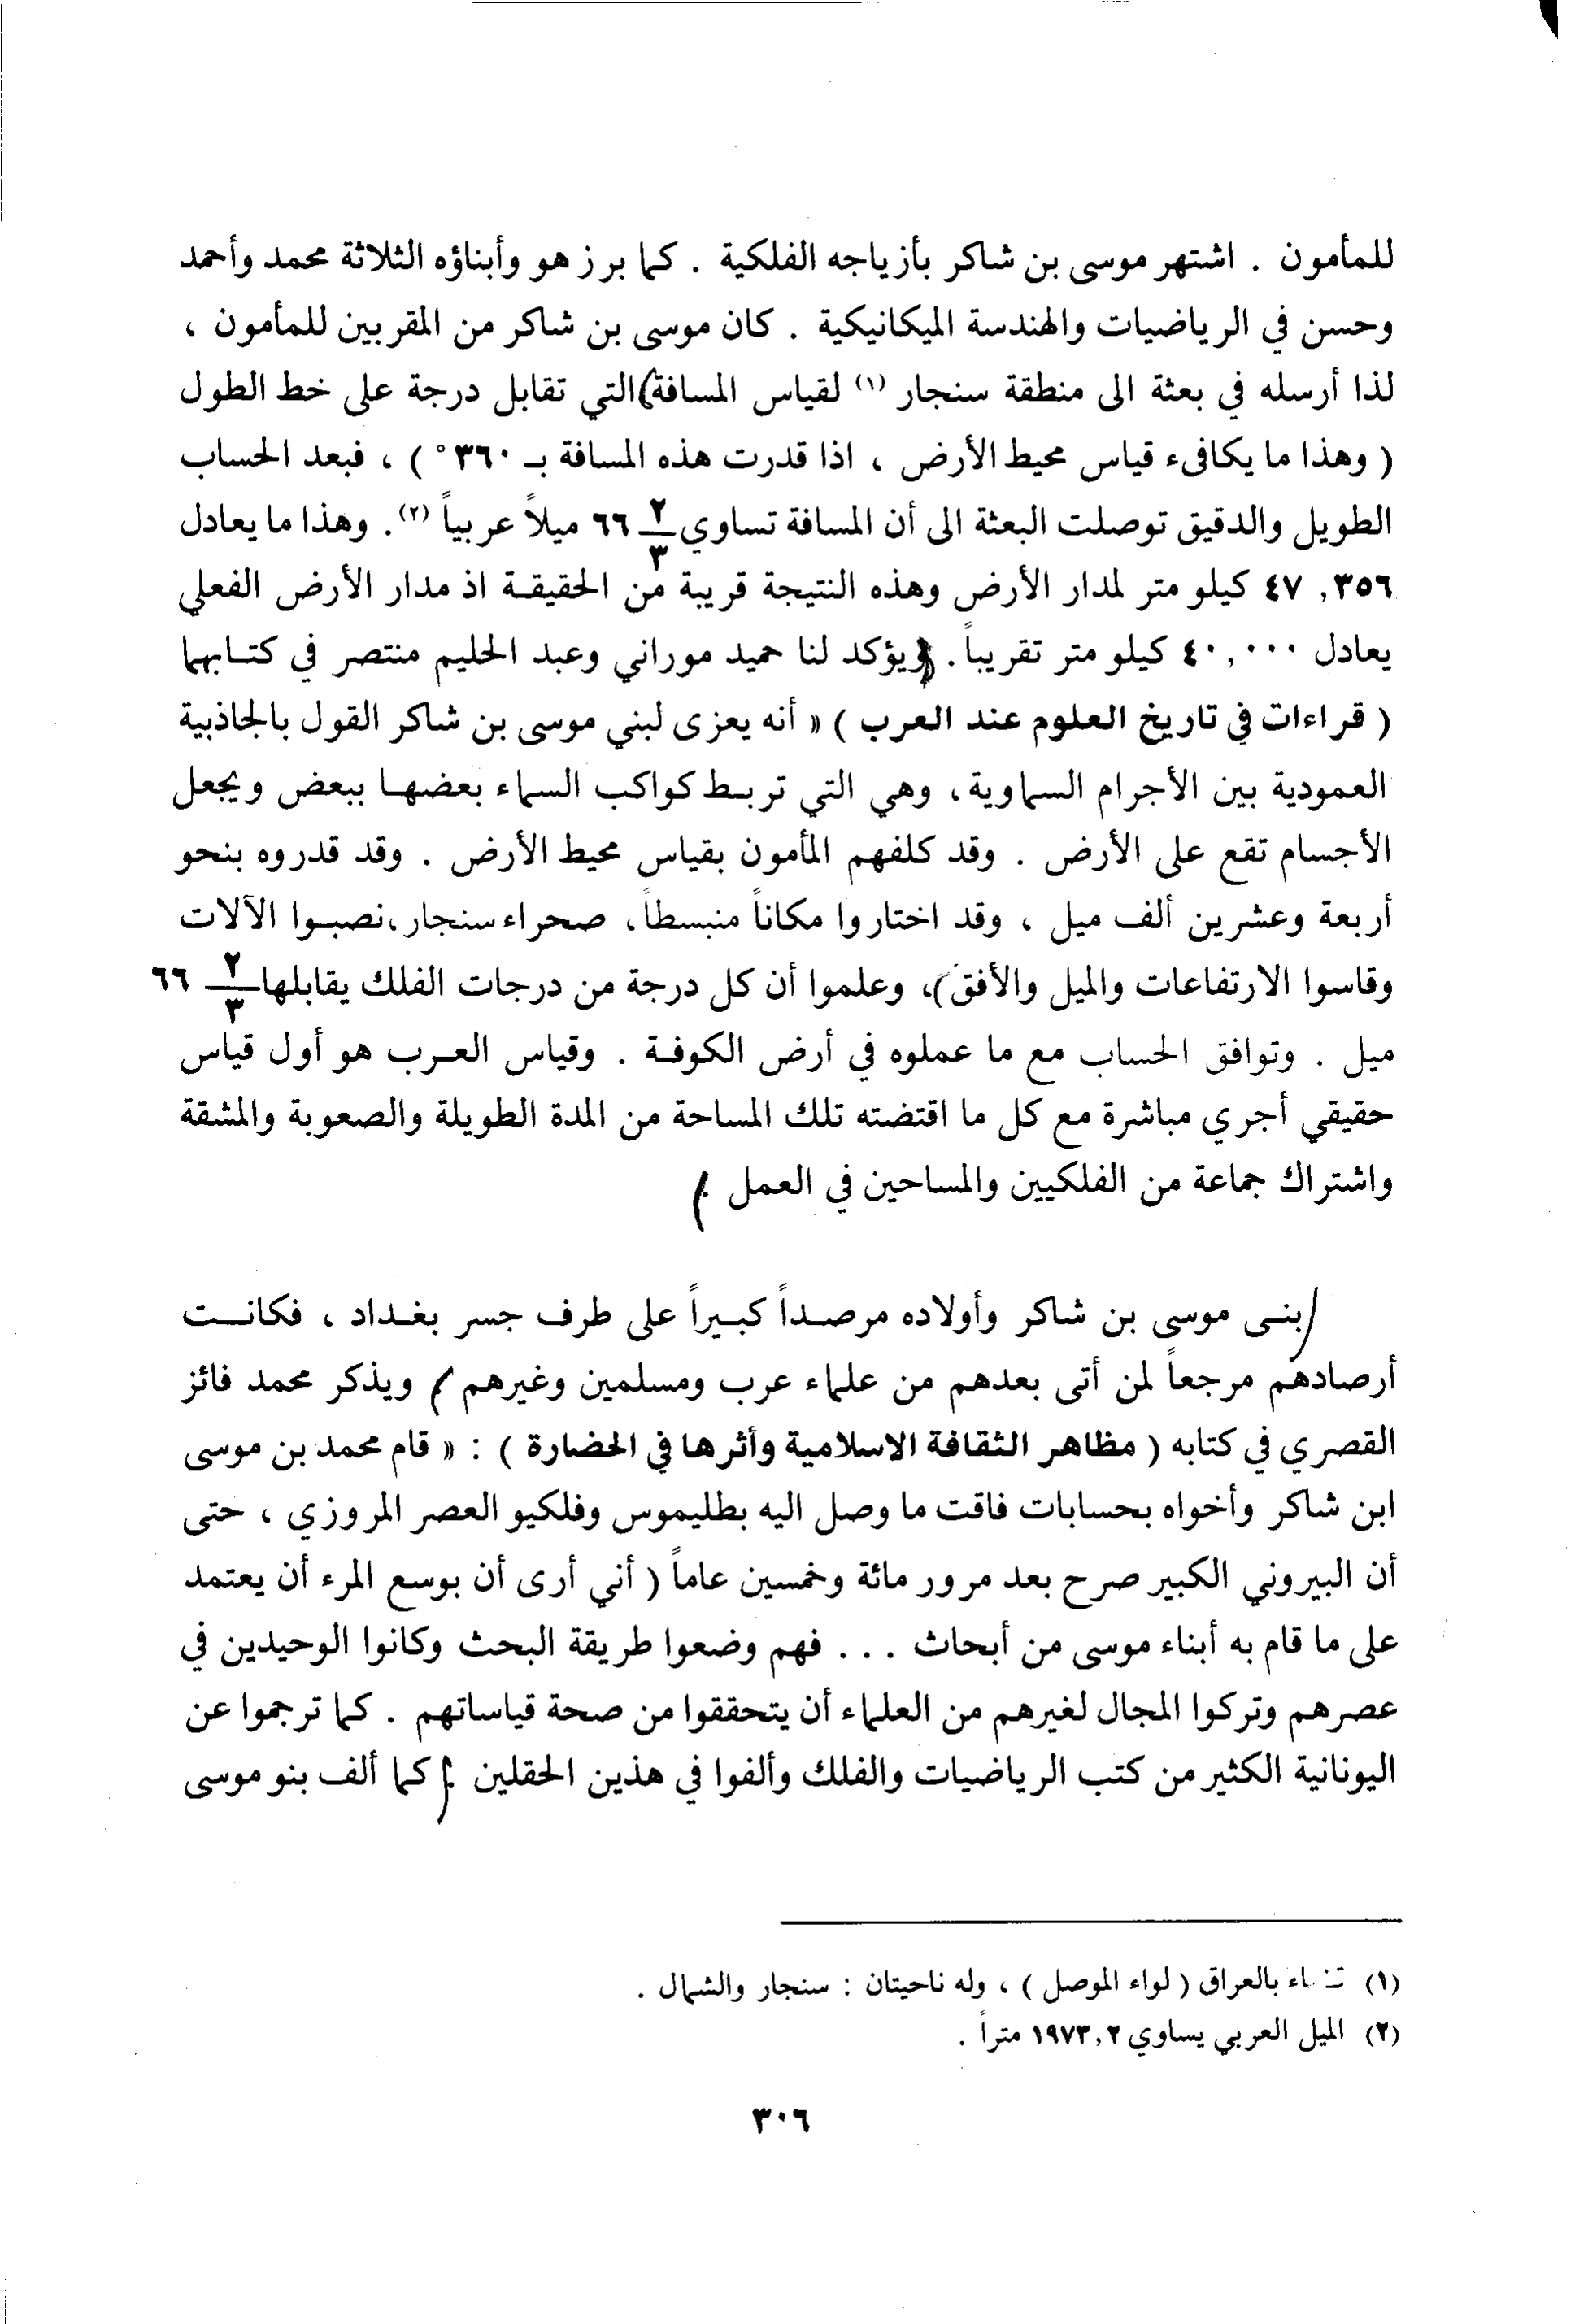 للمأمون . اشتهر موسى بن شاكر بأزياجه الفلكية . كما برز هو وأبناؤه الثلاثة محمد وأحمد
وحسن في الرياضيات والهندسة الميكانيكية . كان موسى بن شاكر من المقربين للمأمون ،
لذا أرسله في بعثة الى منطقة سنجار (١) لقياس المسافة التي تقابل درجة على خط الطول
( وهذا ما يكافىء قياس محيط الأرض ، اذا قدرت هذه المسافة بـ ٣٦٠° ) ، فبعد الحساب
الطويل والدقيق توصلت البعثة الى أن المسافة تساوي ٢/٣ ٦٦ ميلاً عربياً (٢). وهذا ما يعادل
٤٧,٣٥٦ كيلو متر لمدار الأرض وهذه النتيجة قريبة من الحقيقة اذ مدار الأرض الفعلي
يعادل ٤٠,٠٠٠ كيلو متر تقريباً. ويؤكد لنا حميد موراني وعبد الحليم منتصر في كتابهما
( قراءات في تاريخ العلوم عند العرب ) « أنه يعزى لبني موسى بن شاكر القول بالجاذبية
العمودية بين الأجرام السماوية، وهي التي تربط كواكب السماء بعضها ببعض ويجعل
الأجسام تقع على الأرض . وقد كلفهم المأمون بقياس محيط الأرض . وقد قدروه بنحو
أربعة وعشرين ألف ميل ، وقد اختاروا مكاناً منبسطاً، صحراء سنجار، نصبوا الآلات
وقاسوا الارتفاعات والميل والأفق، وعلموا أن كل درجة من درجات الفلك يقابلها ٢/٣ ٦٦
ميل . وتوافق الحساب مع ما عملوه في أرض الكوفة . وقياس العرب هو أول قياس
حقيقي أجري مباشرة مع كل ما اقتضته تلك المساحة من المدة الطويلة والصعوبة والمشقة
واشتراك جماعة من الفلكيين والمساحين في العمل .
بنى موسى بن شاكر وأولاده مرصداً كبيراً على طرف جسر بغداد ، فكانت
أرصادهم مرجعاً لمن أتى بعدهم من علماء عرب ومسلمين وغيرهم . ويذكر محمد فائز
القصري في كتابه ( مظاهر الثقافة الاسلامية وأثرها في الحضارة ) : « قام محمد بن موسى
ابن شاكر وأخواه بحسابات فاقت ما وصل اليه بطليموس وفلكيو العصر المروزي ، حتى
أن البيروني الكبير صرح بعد مرور مائة وخمسين عاماً ( أني أرى أن بوسع المرء أن يعتمد
على ما قام به أبناء موسى من أبحاث . . . فهم وضعوا طريقة البحث وكانوا الوحيدين في
عصرهم وتركوا المجال لغيرهم من العلماء أن يتحققوا من صحة قياساتهم . كما ترجموا عن
اليونانية الكثير من كتب الرياضيات والفلك وألفوا في هذين الحقلين . كما ألف بنو موسى
(١) بالعراق ( لواء الموصل ) ، وله ناحيتان : سنجار والشمال .
(٢) الميل العربي يساوي ١٩٧٣,٢ متراً .
٣٠٦